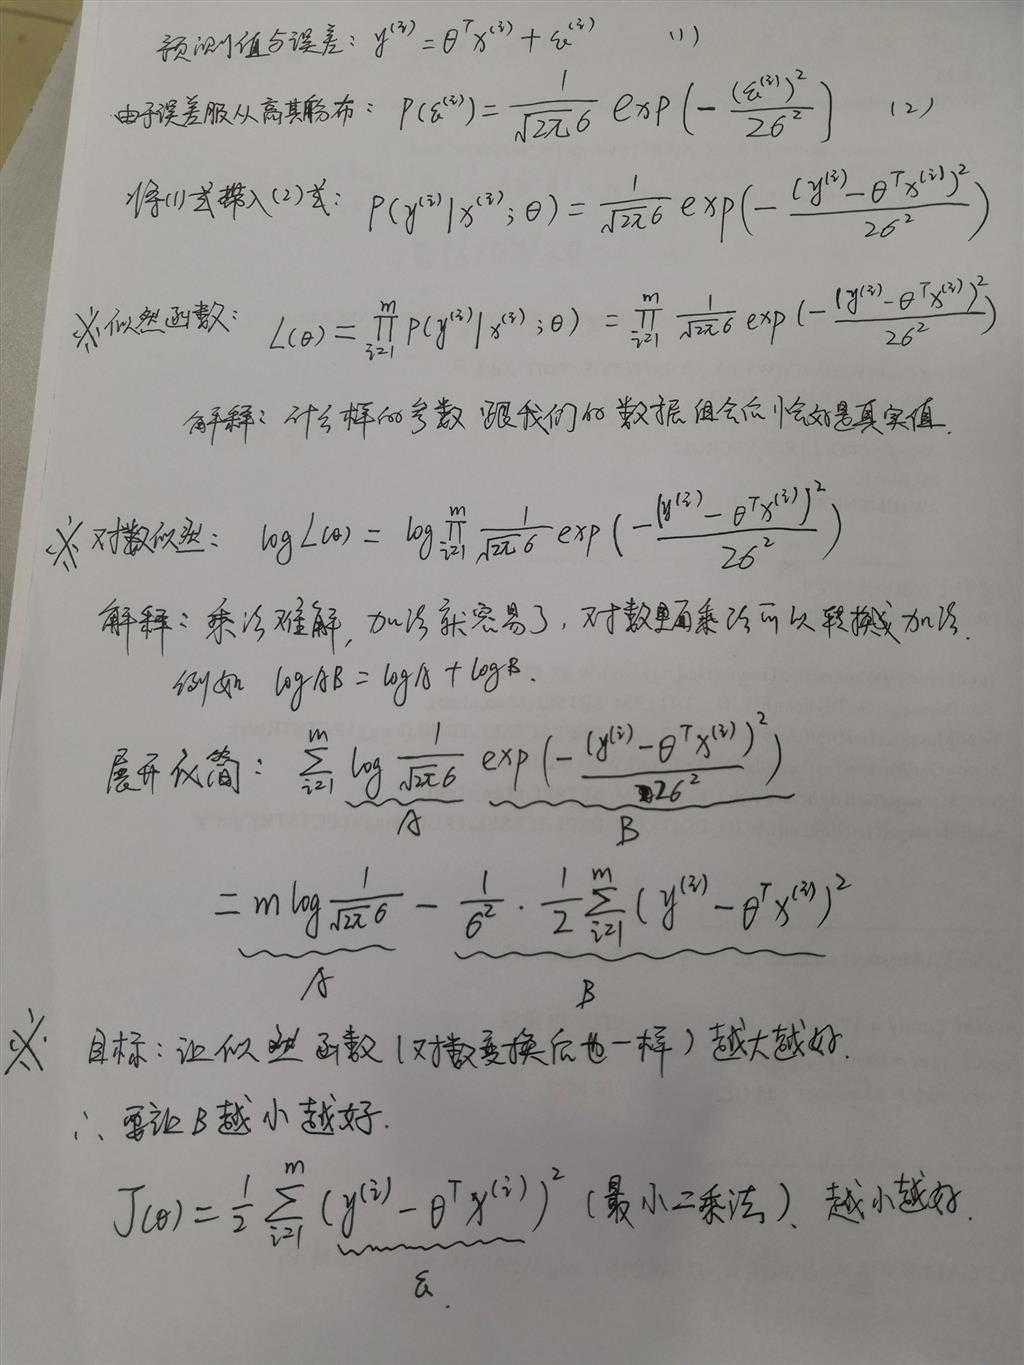 预测值与误差: y⁽ⁱ⁾ = θᵀx⁽ⁱ⁾ + ε⁽ⁱ⁾ (1)
由于误差服从高斯分布: P(ε⁽ⁱ⁾) = 1/(√2π σ) exp(-(ε⁽ⁱ⁾)²/2σ²) (2)
将(1)式带入(2)式: P(y⁽ⁱ⁾|x⁽ⁱ⁾;θ) = 1/(√2π σ) exp(-(y⁽ⁱ⁾-θᵀx⁽ⁱ⁾)²/2σ²)
※似然函数: L(θ) = ∏ᵢ₌₁ᵐ P(y⁽ⁱ⁾|x⁽ⁱ⁾;θ) = ∏ᵢ₌₁ᵐ 1/(√2π σ) exp(-(y⁽ⁱ⁾-θᵀx⁽ⁱ⁾)²/2σ²)
解释: 什么样的参数跟我们的数据组合后恰好是真实值.
※对数似然: log L(θ) = log ∏ᵢ₌₁ᵐ 1/(√2π σ) exp(-(y⁽ⁱ⁾-θᵀx⁽ⁱ⁾)²/2σ²)
解释: 乘法难解, 加法就容易了, 对数里面乘法可以转换成加法.
例如 logAB = logA + logB.
展开化简: ∑ᵢ₌₁ᵐ log 1/(√2π σ) exp(-(y⁽ⁱ⁾-θᵀx⁽ⁱ⁾)²/2σ²)
A B
= m log 1/(√2π σ) - 1/σ² · 1/2 ∑ᵢ₌₁ᵐ (y⁽ⁱ⁾-θᵀx⁽ⁱ⁾)²
A B
※ 目标: 让似然函数(对数变换后也一样)越大越好.
∴ 要让B越小越好.
J(θ) = 1/2 ∑ᵢ₌₁ᵐ (y⁽ⁱ⁾-θᵀx⁽ⁱ⁾)² (最小二乘法)、越小越好.
ε.